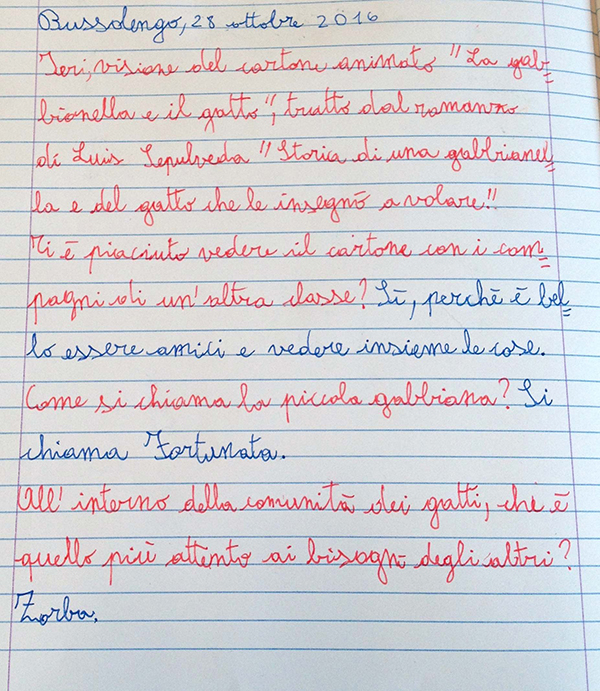 Bussolengo, 28 ottobre 2016
Ieri, visione del cartone animato "La gab=
bianella e il gatto", tratto dal romanzo
di Luis Sepulveda "Storia di una gabbianel=
la e del gatto che le insegnò a volare".
Ti è piaciuto vedere il cartone con i com=
pagni di un'altra classe? Sì, perchè è bel=
lo essere amici e vedere insieme le cose.
Come si chiama la piccola gabbiana? Si
chiama Fortunata.
All'interno della comunità dei gatti, chi è
quello più attento ai bisogni degli altri?
Zorba.